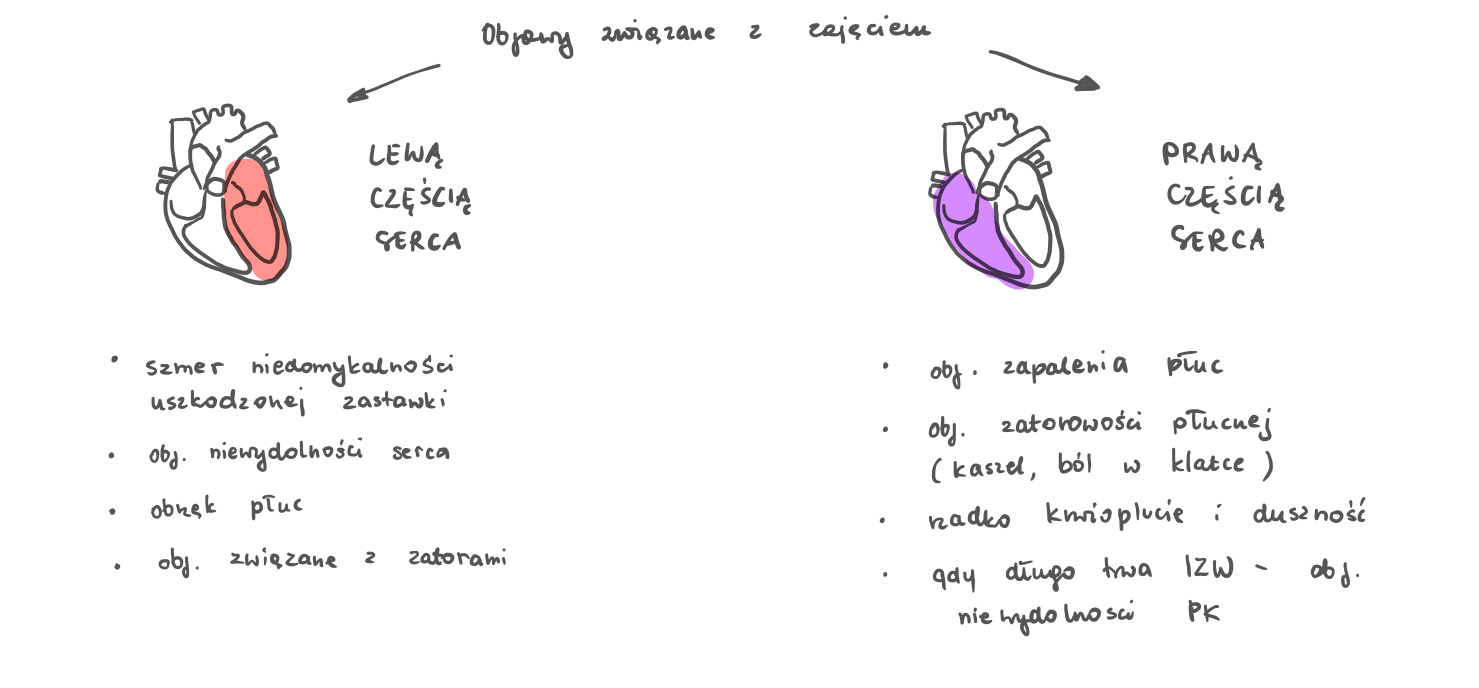 Objawy związane z zajęciem
LEWĄ
CZĘŚCIĄ
SERCA
• szmer niedomykalności
uszkodzonej zastawki
• obj. niewydolności serca
• obrzęk płuc
• obj. związane z zatorami
PRAWĄ
CZĘŚCIĄ
SERCA
• obj. zapalenia płuc
• obj. zatorowości płucnej
(kaszel, ból w klatce)
• rzadko krwioplucie i duszność
• gdy długo trwa IZW - obj.
niewydolnosci PK